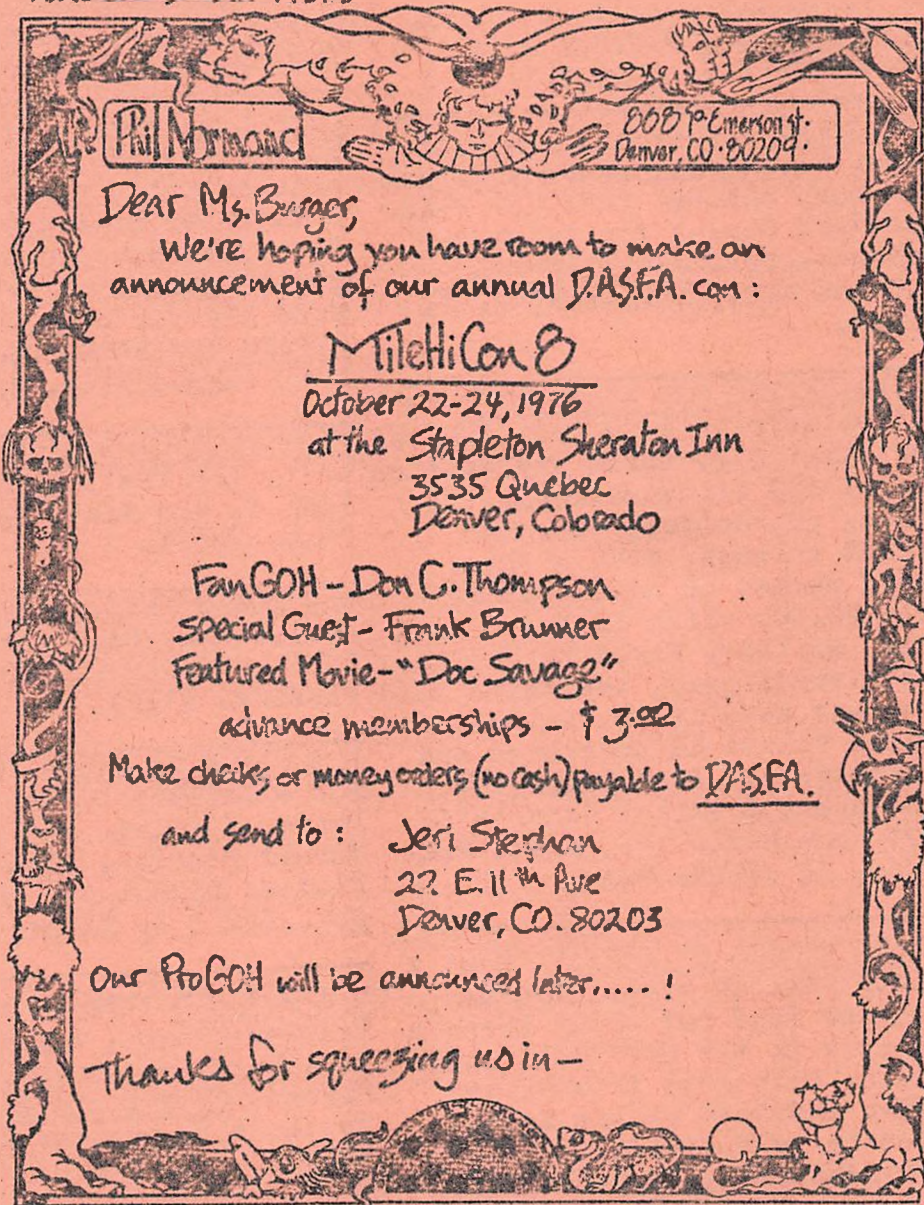 Phil Normand
Emerson St.
Denver, CO. 80209.
Dear Ms. Burger,
We're hoping you have room to make an
announcement of our annual D.A.S.F.A. con:
MileHiCon 8
October 22-24, 1976
at the Stapleton Sheraton Inn
3535 Quebec
Denver, Colorado
Fan GOH - Don C. Thompson
special Guest - Frank Brunner
Featured Movie - "Doc Savage"
advance memberships - $3.00
Make checks or money orders (no cash) payable to D.A.S.F.A.
and send to:
Jeri Stephan
E. 11th Ave
Denver, CO. 80203
Our ProGOH will be announced later.....!
Thanks for squeezing us in -